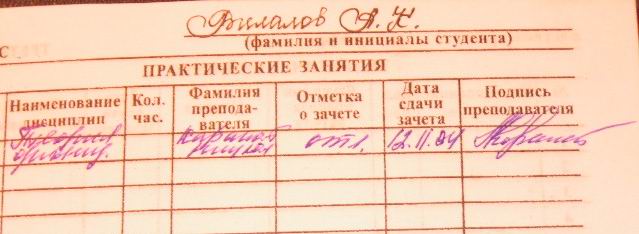 С Билалов А. К.
(фамилия и инициалы студента)
ПРАКТИЧЕСКИЕ ЗАНЯТИЯ
Наименование дисциплин
Кол. час.
Фамилия препода-
вателя
Отметка о зачете
Дата сдачи зачета
Подпись преподавателя
отл.
12.11.04